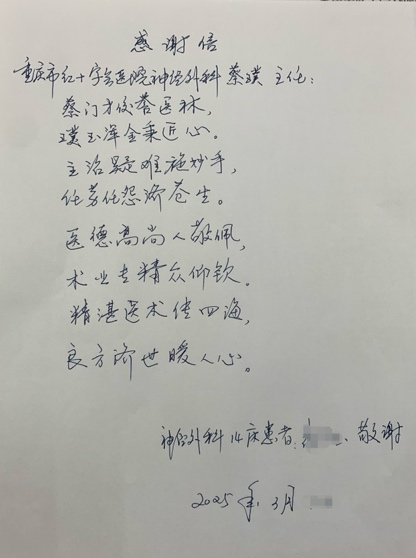 感谢信
重庆市红十字会医院神经外科 蔡璞 主任：
蔡门才俊誉医林，
璞玉浑金秉匠心。
主治疑难施妙手，
任劳任怨济苍生。
医德高尚人敬佩，
术业专精众仰钦。
精湛医术传四海，
良方济世暖人心。
神经外科 14床患者: 敬谢
2025年3月